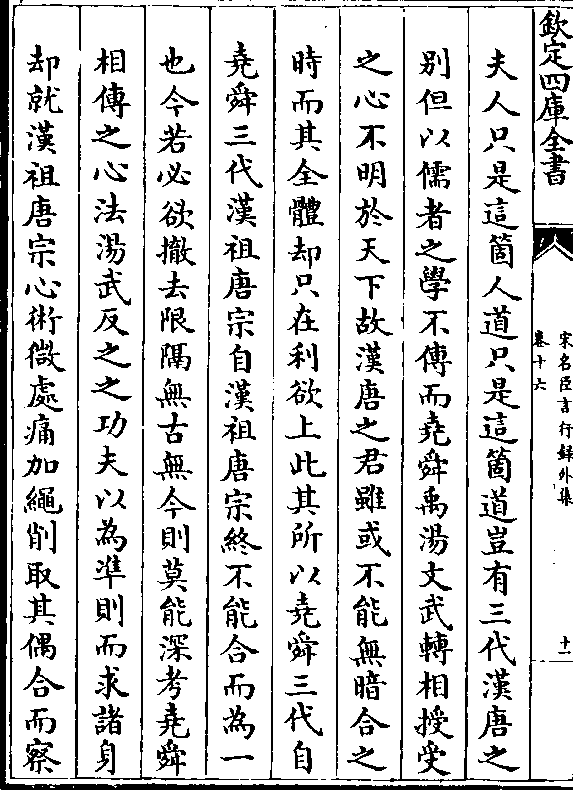 欽定四庫全書
宋名臣言行録外集
卷十六
十一
夫人只是這箇人道只是這箇道豈有三代漢唐之
别但以儒者之學不傳而堯舜禹湯文武轉相授受
之心不明於天下故漢唐之君雖或不能無暗合之
時而其全體却只在利欲上此其所以堯舜三代自
堯舜三代漢祖唐宗自漢祖唐宗終不能合而為一
也今若必欲撤去限隔無古無今則莫能深考堯舜
相傳之心法湯武反之之功夫以為凖則而求諸身
却就漢祖唐宗心術微處痛加繩削取其偶合而察